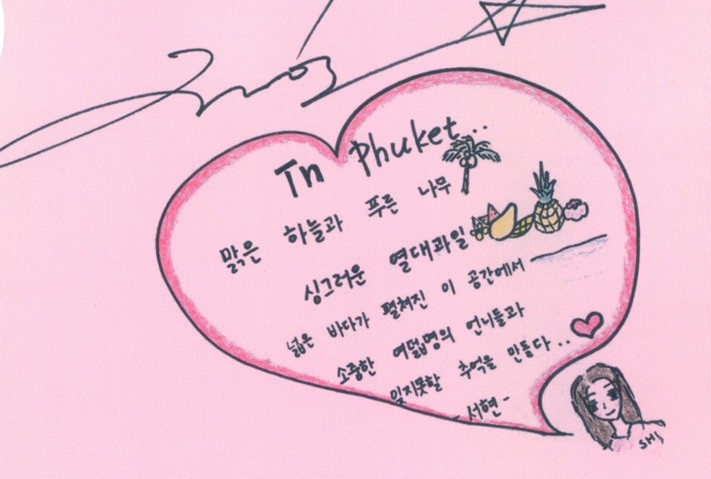 In Phuket...
맑은 하늘과 푸른 나무
싱그러운 열대과일
넓은 바다가 펼쳐진 이 공간에서
소중한 여덟명의 언니들과
잊지못할 추억을 만들다..
- 서현 -
SHJ